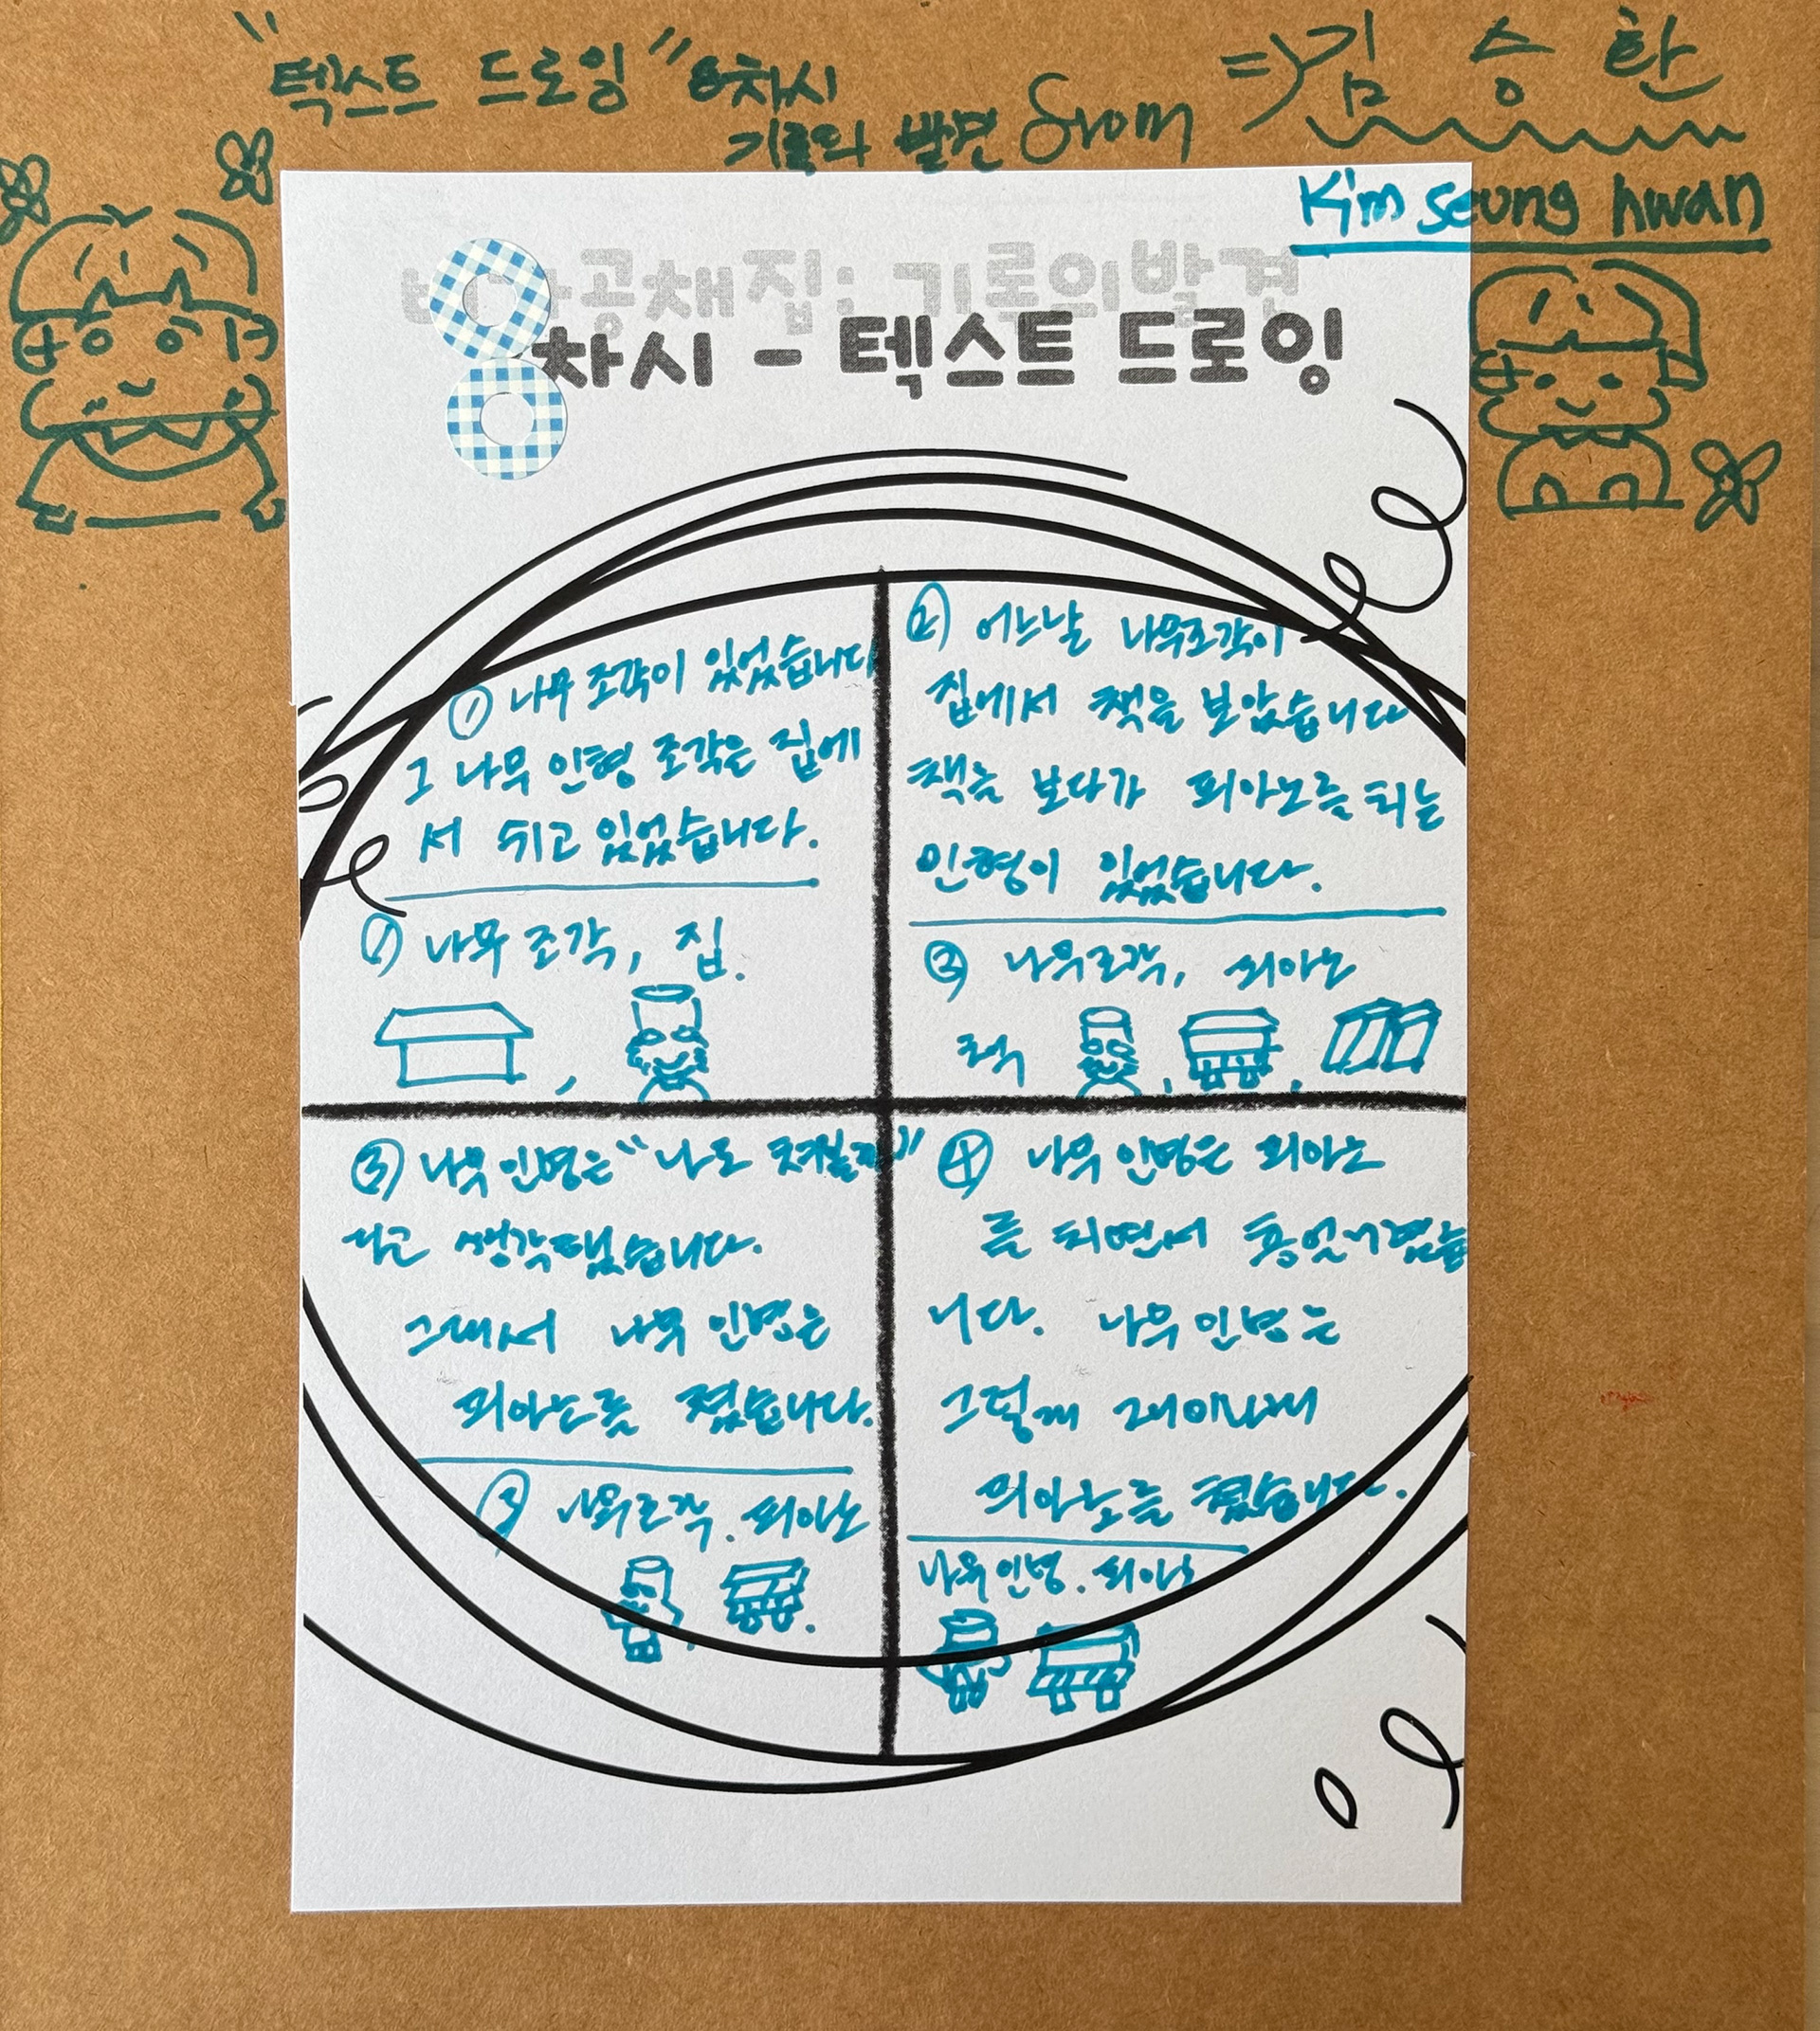 "텍스트 드로잉" 8차시
기록의 발견 From
=> 김 승 환
Kim seung hwan
공채집: 기록의발견
차시 - 텍스트 드로잉
① 나무 조각이 있었습니다
그 나무 인형 조각은 집에
서 쉬고 있었습니다.
① 나무 조각, 집.
② 어느날 나무조각이
집에서 책을 보았습니다
책을 보다가 피아노를 치는
인형이 있었습니다.
② 나무조각, 피아노
책
③ 나무 인형은 "나도 쳐볼까"
라고 생각했습니다.
그래서 나무 인형은
피아노를 쳤습니다.
③ 나무조각. 피아노
④ 나무 인형은 피아노
를 치면서
니다. 나무 인형은
그렇게
피아노를 쳤습니다.
나무 인형. 피아노